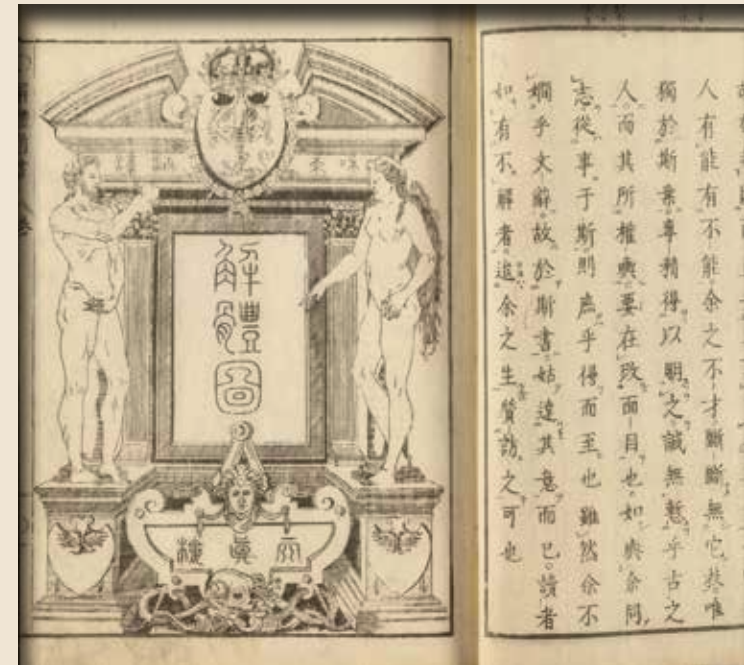 人有能有不能余之不才斷斷無它技唯
獨於斯業專精得以明之誠無慙乎古之
人而其所權輿要在改面目也如與余同
志從事于斯則庶乎得而至也雖然余不
嫺乎文辭故於斯書姑達其意而已讀者
如有不解者追余之生質訪之可也
解體圖
天眞樓